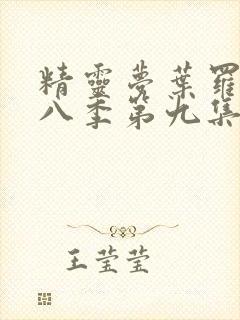 精靈夢葉羅
八季第九集
王莹莹